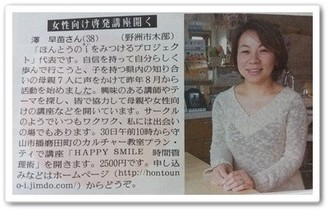 女性向け啓発講座開く
澤 早苗さん(38) (野洲市木部)
「ほんとうのiをみつけるプロジェク
ト」代表です。自信を持って自分らしく
歩んで行こうと、子を持つ県内の知り合
いの母親7人に声をかけて昨年8月から
活動を始めました。興味のある講師やテ
ーマを探し、皆で協力して母親や女性向
けの講座などを開いています。サークル
のようでいつもワクワク、私には出会い
の場でもあります。30日午前10時から守
山市播磨田町のカルチャー教室プラン・
ティで講座「HAPPY SMILE 時間管
理術」を開きます。2500円です。申し込
みなどはホームページ(http://hontou
no-i.jimdo.com/)からどうぞ。